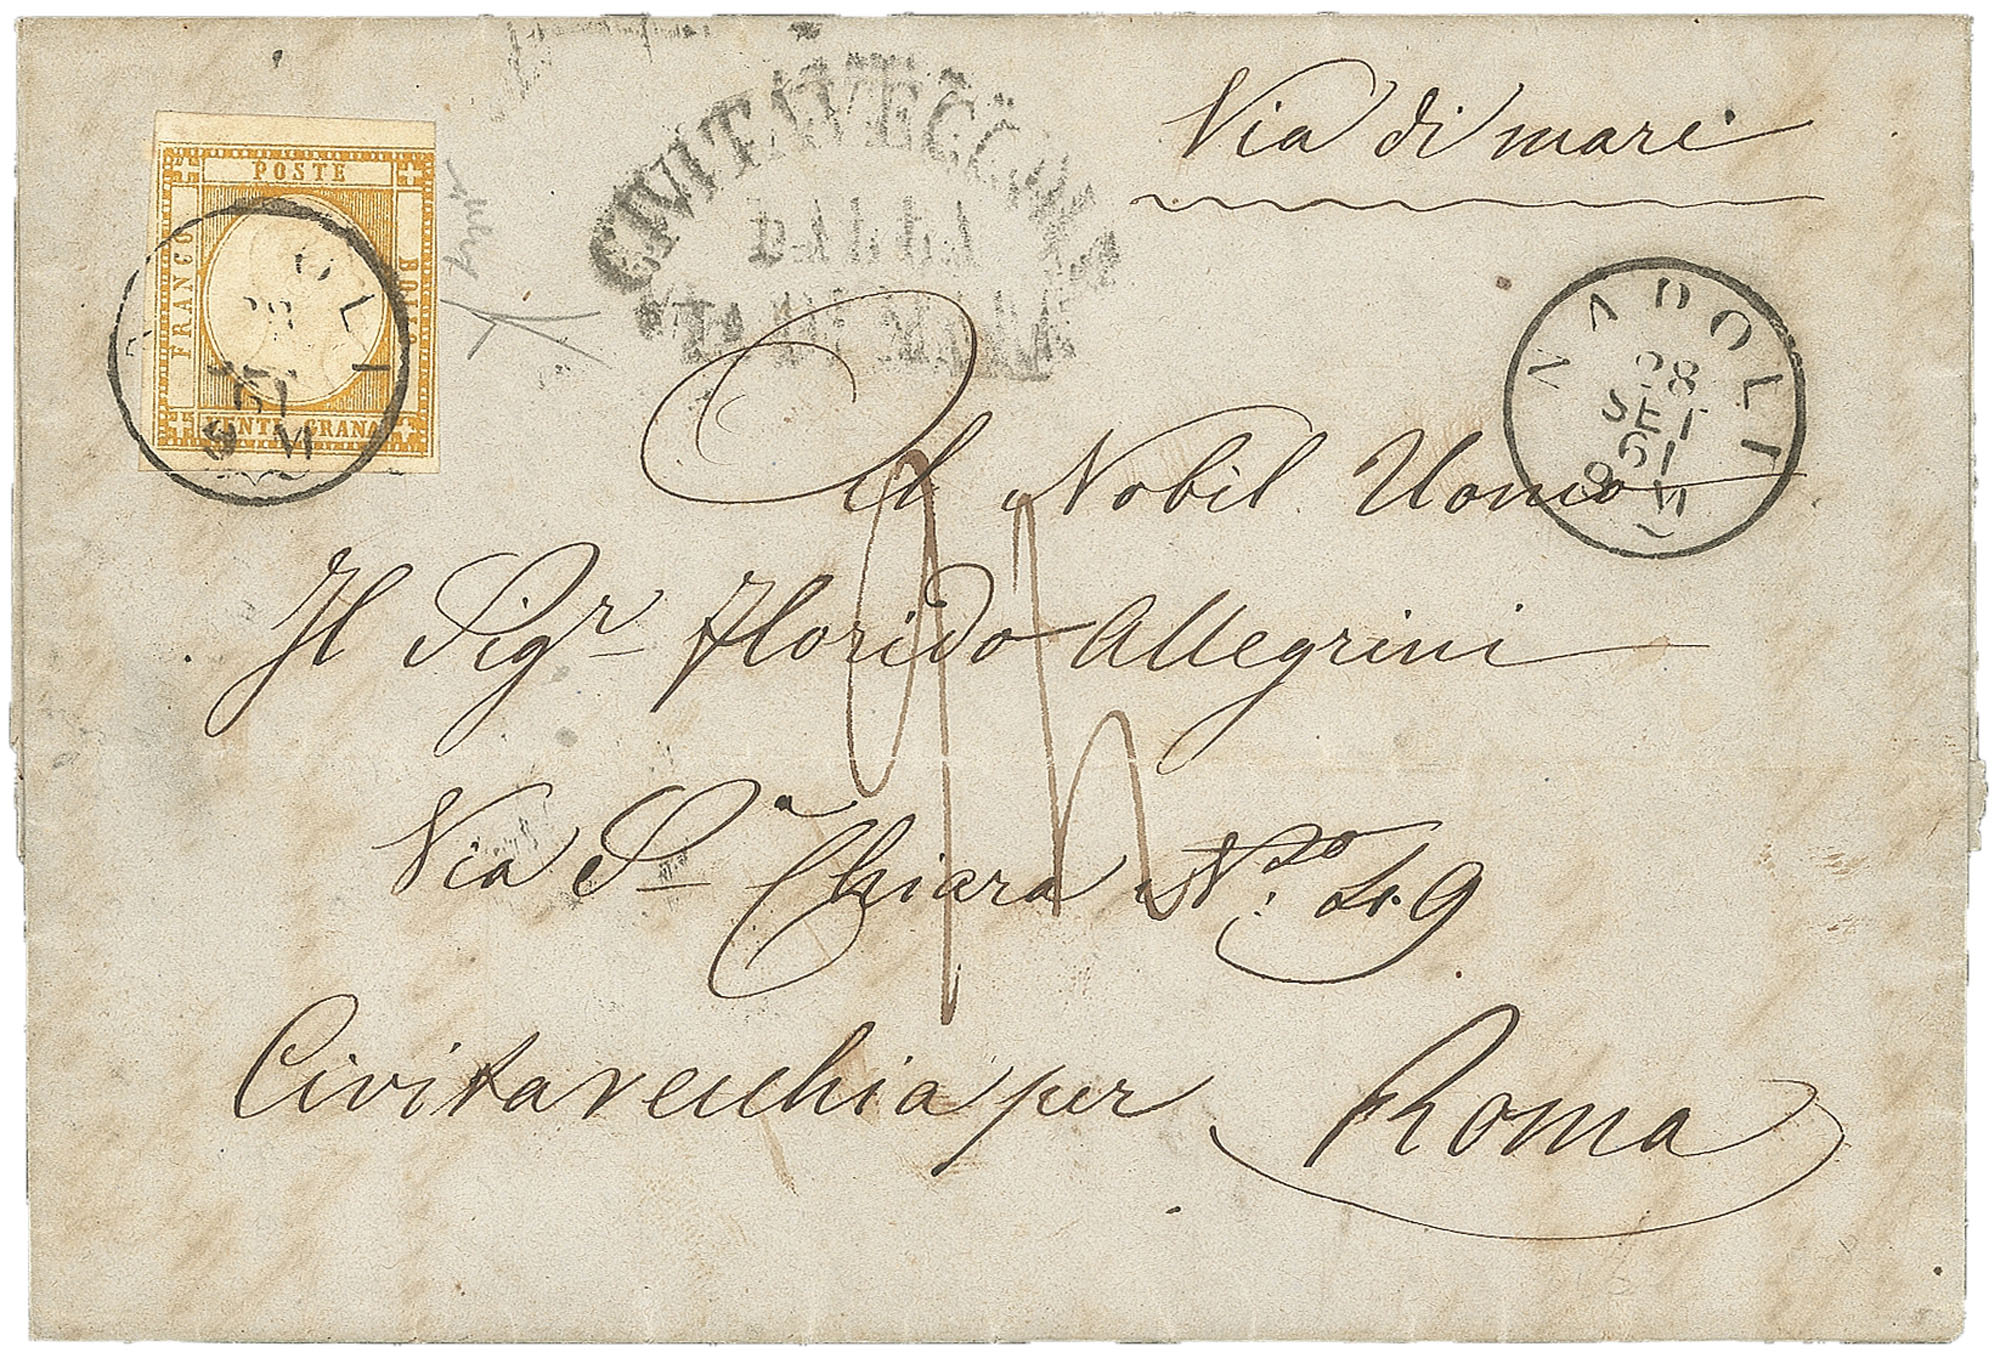 Via di mare
POSTE
FRANCO
BOLLO
VENTI GRANA
OLI
CIVITAVECCHIA
DALLA
NAPOLI
28
SET
61
8 M
Al Nobil Uomo
Il Sigr Florido Allegrini
Via Sa Chiara No 49
Civitavecchia per Roma